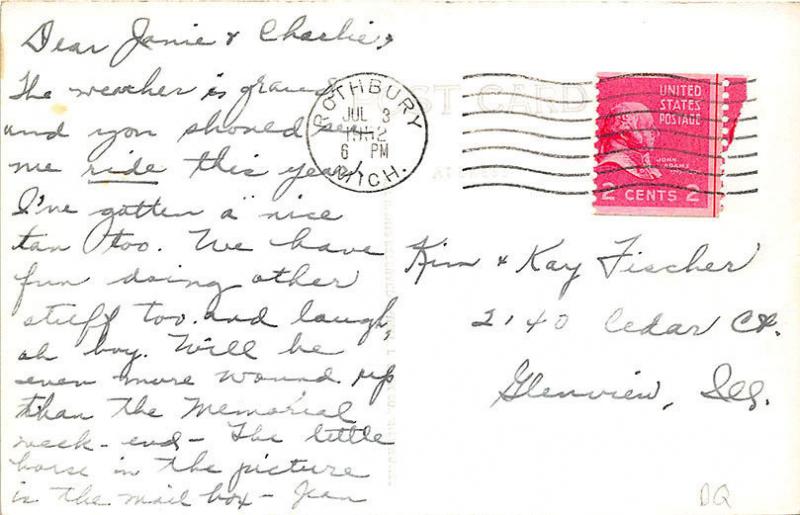 Dear Janie & Charlie,
The weather is grand
and you should see
me ride this year!
I've gotten a nice
tan too. We have
fun doing other
stuff too. and laugh,
oh boy. Will be
even more wound up
than the Memorial
week-end - The little
horse in the picture
is the mail box - Jean
POST CARD
ROTHBURY
JUL 3
6 PM
MICH.
UNITED
STATES
POSTAGE
JOHN
ADAMS
2 CENTS 2
Kim & Kay Fischer
2140 Cedar Ct.
Glenview, Ill.
DQ